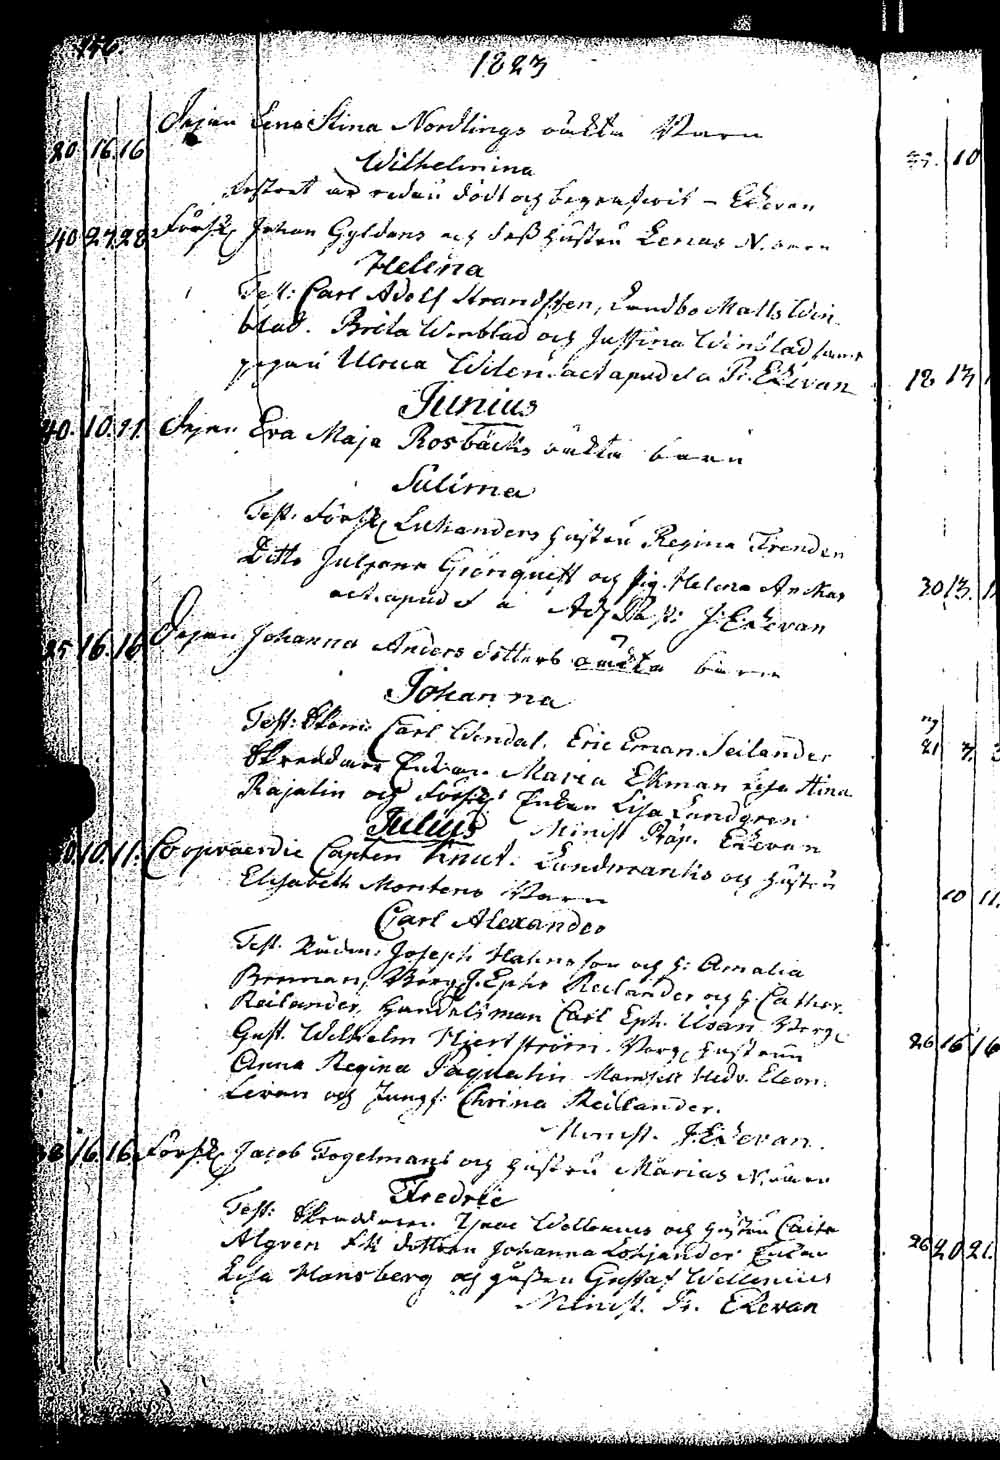 146.
1823
Pigan Lena Stina Nordlings oäkta Barn
20. 16. 16
Wilhelmina
är redan död och begrafwit – Ekevan
40 27. 28 Försk Johan Gyldens och deß hustru Lenas N. barn
Helena
Test: Carl Adolf Strandsten, Landbo Matts Win
blad. Brita Winblad och Justina Winblad samt
pigan Ulrica Wilen. act apud d a Pr. Ekevan
Junius
40. 10. 11. Pigan Eva Maja Rosbäcks oäkta barn
Sulima
Test. Försk Lukanders hustru Regina Trenden
Ditto Juliana Grönquist och pig. Helena Anckar
act. apud d a Adj. Past: J: Ekevan
25 16. 16 Pigan Johanna Anders dotters oäkta barn
Johanna
Test: Skom: Carl Wendal. Eric Eman. Seilander
Skreddare Enkan Maria Ekman Lisa Stina
Rajalin och Försk: Enkan Lisa Lundgren
Julius Minist Präp. Ekevan
30. 10. 11. Coopvaerdie Capten Knut. Landmarks och hustru
Elisabeth Montens Barn
Carl Alexander
Test. Joseph Hahnsson och h: Amalia
Brenan, Borg J. Ephr Reilander och h. Cather.
Reilander, Handelsman Carl Eph. Usan Borg
Gust. Wilhelm Hjertström. Borg hustrun
Anna Regina Mamsell Hedv. Eleon.
Levan och Jungf: Chrina Reilander.
Minist. J: Ekevan.
38 16. 16. Försk Jacob Fogelmans och hustru Marias N. barn
Fredric
Test: Skreddaren Isaac Wellenius och hustru Caisa
Algren dottren Johanna Lohjander Enkan
Lisa Hansberg och gåßen Gustaf Wellenius
Minist. Pr. Ekevan
10
18 13
30 13.
21
10 11.
26 16 16
26 20 21.